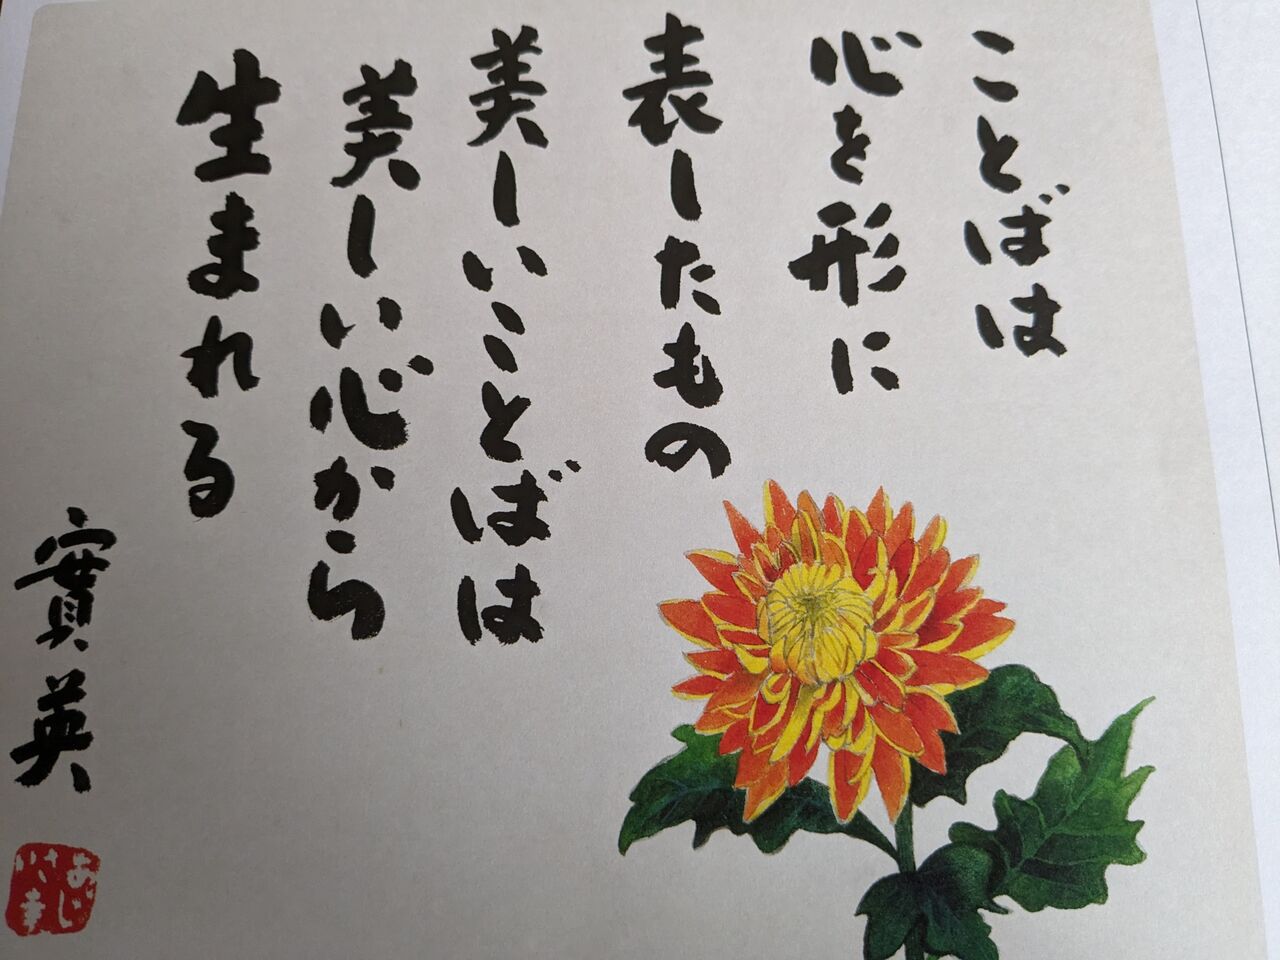 ことばは
心を形に
表したもの
美しいことばは
美しい心から
生まれる
實英